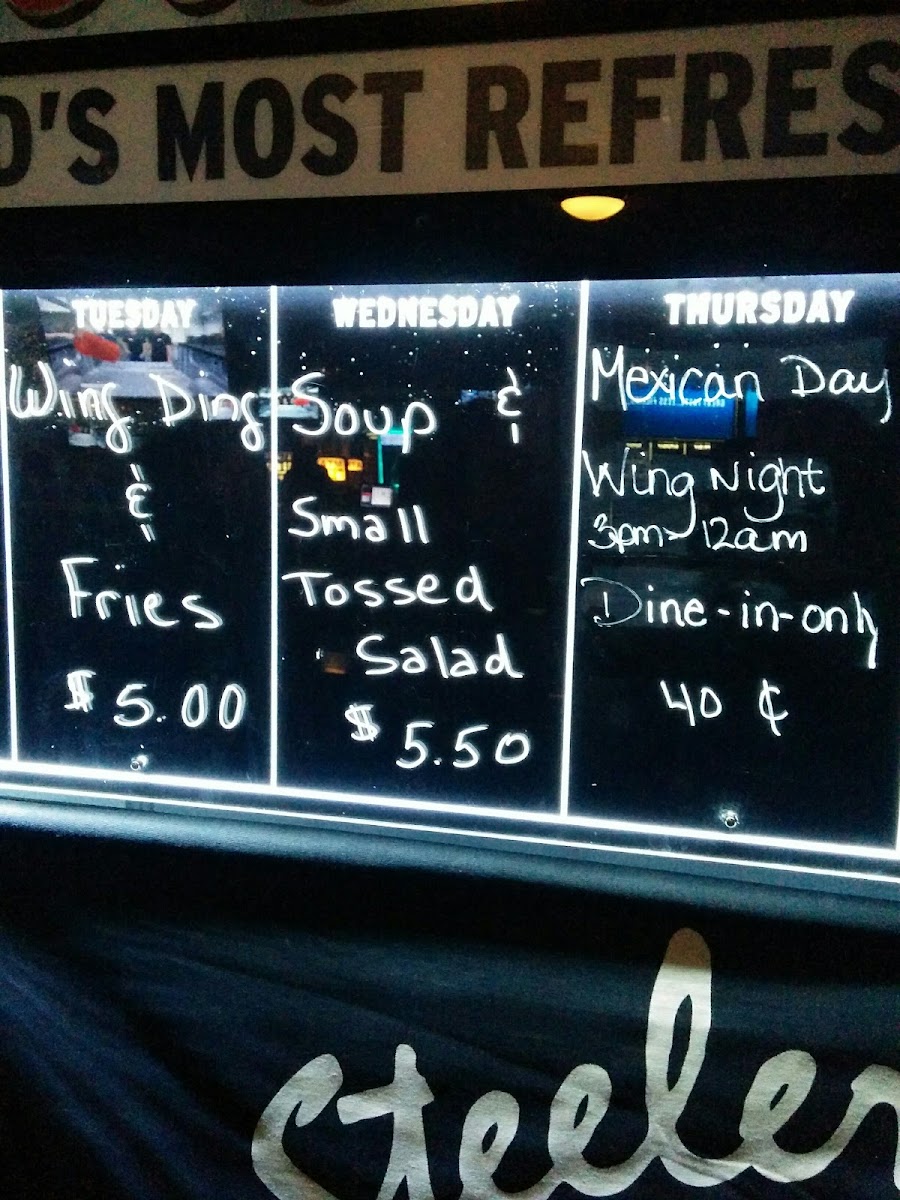 D'S MOST REFRES
TUESDAY
Wing Ding
&
Fries
$5.00
WEDNESDAY
Soup &
Small
Tossed
Salad
$5.50
THURSDAY
Mexican Day
Wing Night
3pm-12am
Dine-in-only
40 ¢
Steeler